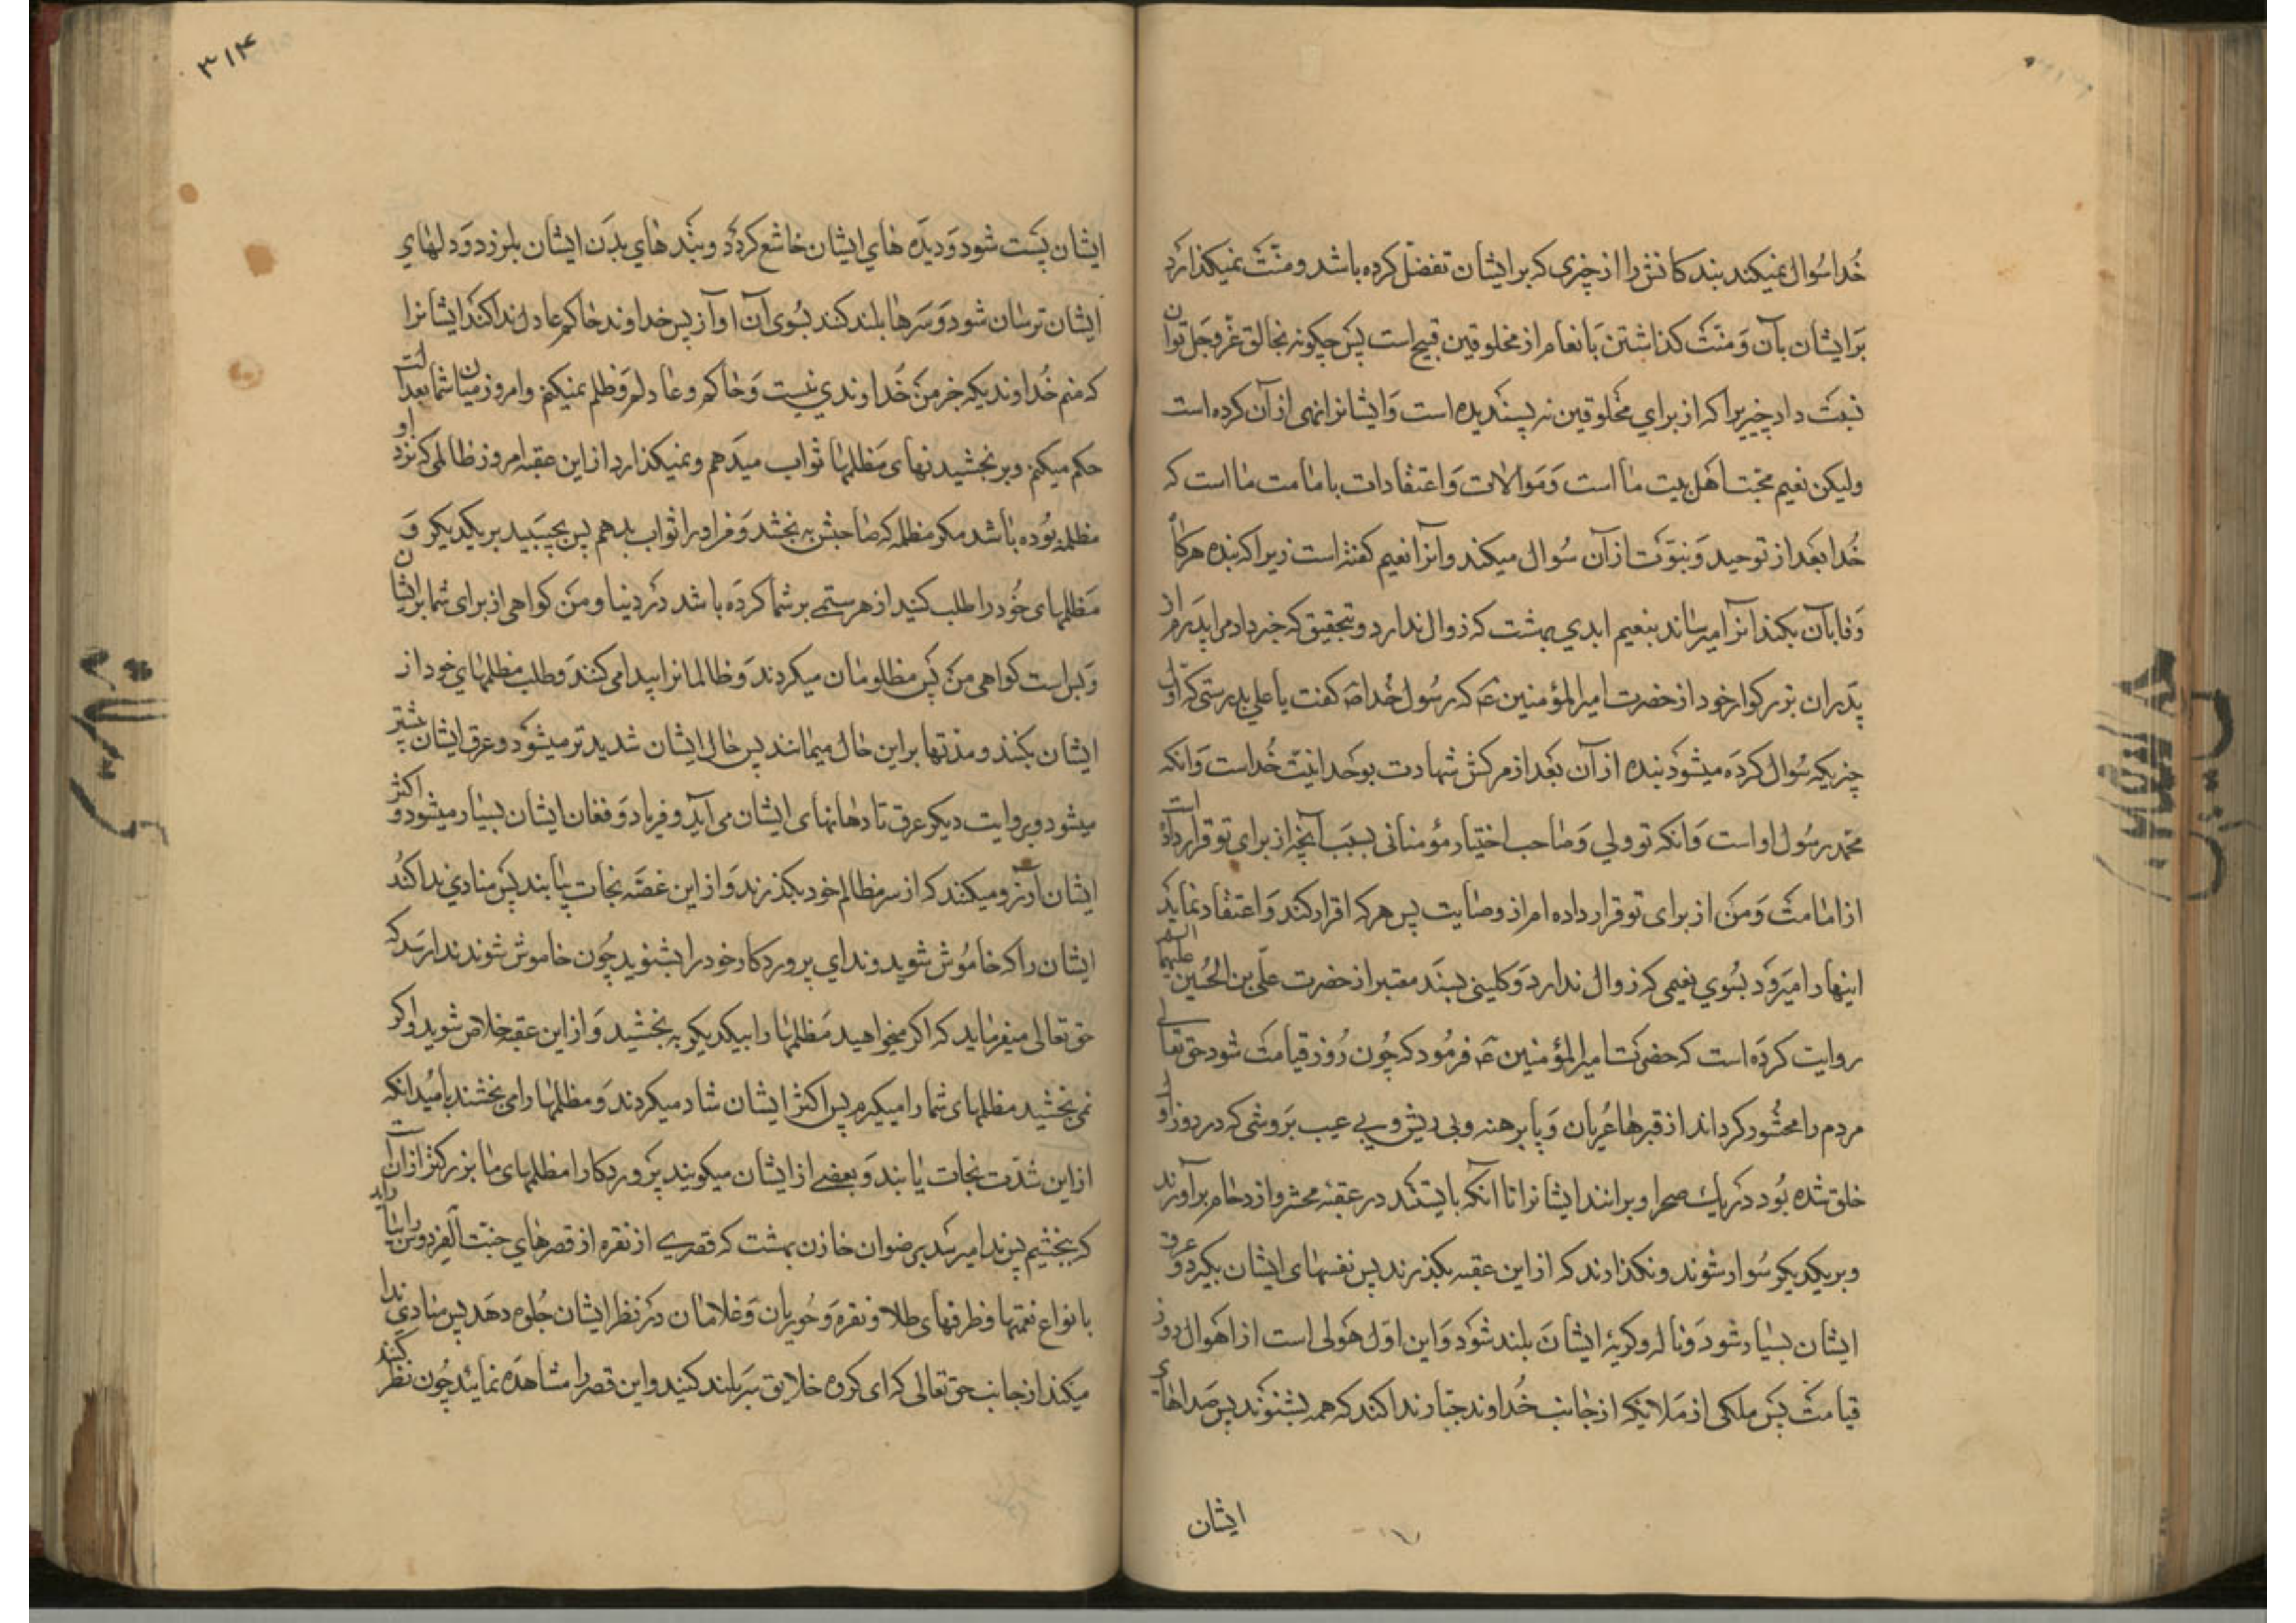 خدا سُوال نمیکند بندکانش را از چیزی که بر ایشان تفضّل کرده باشد و منّت نمیکذارد
بَر ایشان بآن وَ منّت کذاشتن بَانعام از مخلوقین قبیح است پس چکونه بخالق عزّ و جَل توان
نسبت داد چیزیرا که از برای مخلوقین نه پسندیده است وَ ایشانرا نهی از آن کرده است
ولیکن نعیم محبّت اهل بیت ما است وَ موالات وَ اعتقادات بامامت ما است که
خُدا بعد از توحید وَ نبوّت از آن سُوال میکند و آنرا نعیم کفته است زیرا که بنده هرکاه
وَفا بآن بکند آنرا میرساند بنعیم ابدی بهشت که زوال ندارد و بتحقیق که خبر داد مرا پدَرم از
پدَران بزرکوار خود از حضرت امیر المؤمنین ع که رسُول خُدا ص کفت یا علی بدرستی که اوّل
چیزیکه سُوال کردَه میشود بنده از آن بعَد از مرکش شهادت بوحدانیّت خُداست وَ انکه
محمّد رسُول او است وَ انکه تو ولی وَ صاحب اختیار مؤمنانی بسبَب آنچه از برای تو قرار داده است
از امامت وَ من از برای تو قرار داده ام از وصایت پس هرکه اقرار کند وَ اعتقاد نماید
اینها را میرَود بسُوی نعیمی که زوال ندارد وَ کلینی بسنَد معتبر از حضرت علی بن الحُسین علیهما السلام
روایت کردَه است که حضرت امیر المؤمنین ع فرمُود که چُون رُوز قیامت شود حق تعالی
مردم را محشُور کرداند از قبرها عُریان وَ پا برهنه و بی ریش و بی عیب بَروشی که در روز اول
خلق شده بُود در یک صحرا و برانند ایشانرا تا آنکه بایستند در عقبه محشر و ازدحام برآورند
و بر یکدیکر سُوار شوند و نکذارند که از این عقبه بکذرند پس نفسهای ایشان بکیرد و عرق
ایشان بسیار شود وَ ناله و کریهٔ ایشان بلند شود وَ این اوّل هَولی است از اهوال روز
قیامت پس ملکی از مَلائکه از جانب خُداوند جبّار ندا کند که همه بشنوند پس صَداهای
ایشان
۳۱۴
ایشان پَست شود وَ دیدَه های ایشان خاشع کردَد و بنَد های بدَن ایشان بلرزد وَ دلهای
ایشان ترسان شود وَ سَرها بلند کنند بسُوی آن آواز پس خداوند حاکم عادل ندا کند ایشانرا
که منم خُداوندیکه جز من خُداوندی نیست وَ حاکم و عادلم وَ ظلم نمیکنم و امروز میان شما بعدالت
حکم میکنم و بر بخشیدنهای مَظلمها ثواب میدَهم و نمیکذارد از این عقبه امروز ظالمی که نزد او
مظلمه بُوده باشد مکر مظلمه که صاحبش به بخشد وَ من او را ثواب بدهم پس بچسَبید بر یکدیکر وَ
مَظلمهای خُود را طلب کنید از هر ستمی بر شما کردَه باشد در دنیا و من کواهی از برای شما بر ایشان
وَ بس است کواهی من پس مظلومان میکردند وَ ظالمانرا پیدا می کنند وَ طلب مظلمهای خود از
ایشان بکنند و مدّتها براین حال میمانند پس حال ایشان شدیدتر میشود و عرق ایشان بیشتر
میشود و بروایت دیکر عرق تا دهانهای ایشان می آید و فریاد وَ فغان ایشان بسیار میشود و اکثر
ایشان آرزو میکنند که از سر مظالم خود بکذرند وَ از این غصّه نجات یابند پس منادی ندا کند
ایشان را که خامُوش شوید و ندای پروردکار خود را بشنوید چُون خاموش شوند ندا رسَد که
حق تعالی میفرماید که اکر میخواهید مَظلمها را بیکدیکر به بخشید وَ از این عقبه خلاص شوید و اکر
نمی بخشید مظلمهای شما را میکیرم پس اکثر ایشان شاد میکردند وَ مظلمها را می بخشند بامُید انکه
از این شدّت نجات یابند وَ بعضی از ایشان میکویند پَروردکارا مظلمهای ما بزرکتر از آنست
که ببخشیم پس ندا میرسَد برضوان خازن بهشت که قصری از نقره از قصرهای جنّت الفردوس را بیاراید
با نواع نعمتها و ظرفهای طلا و نقره وَ حُوریان وَ غلامان در نظر ایشان جُلوه دهَد پس منادی ندا
میکند از جانب حق تعالی که ای کروه خلایق سَر بلند کنید و این قصر را مشاهدَه نمائید چُون نظر کنند